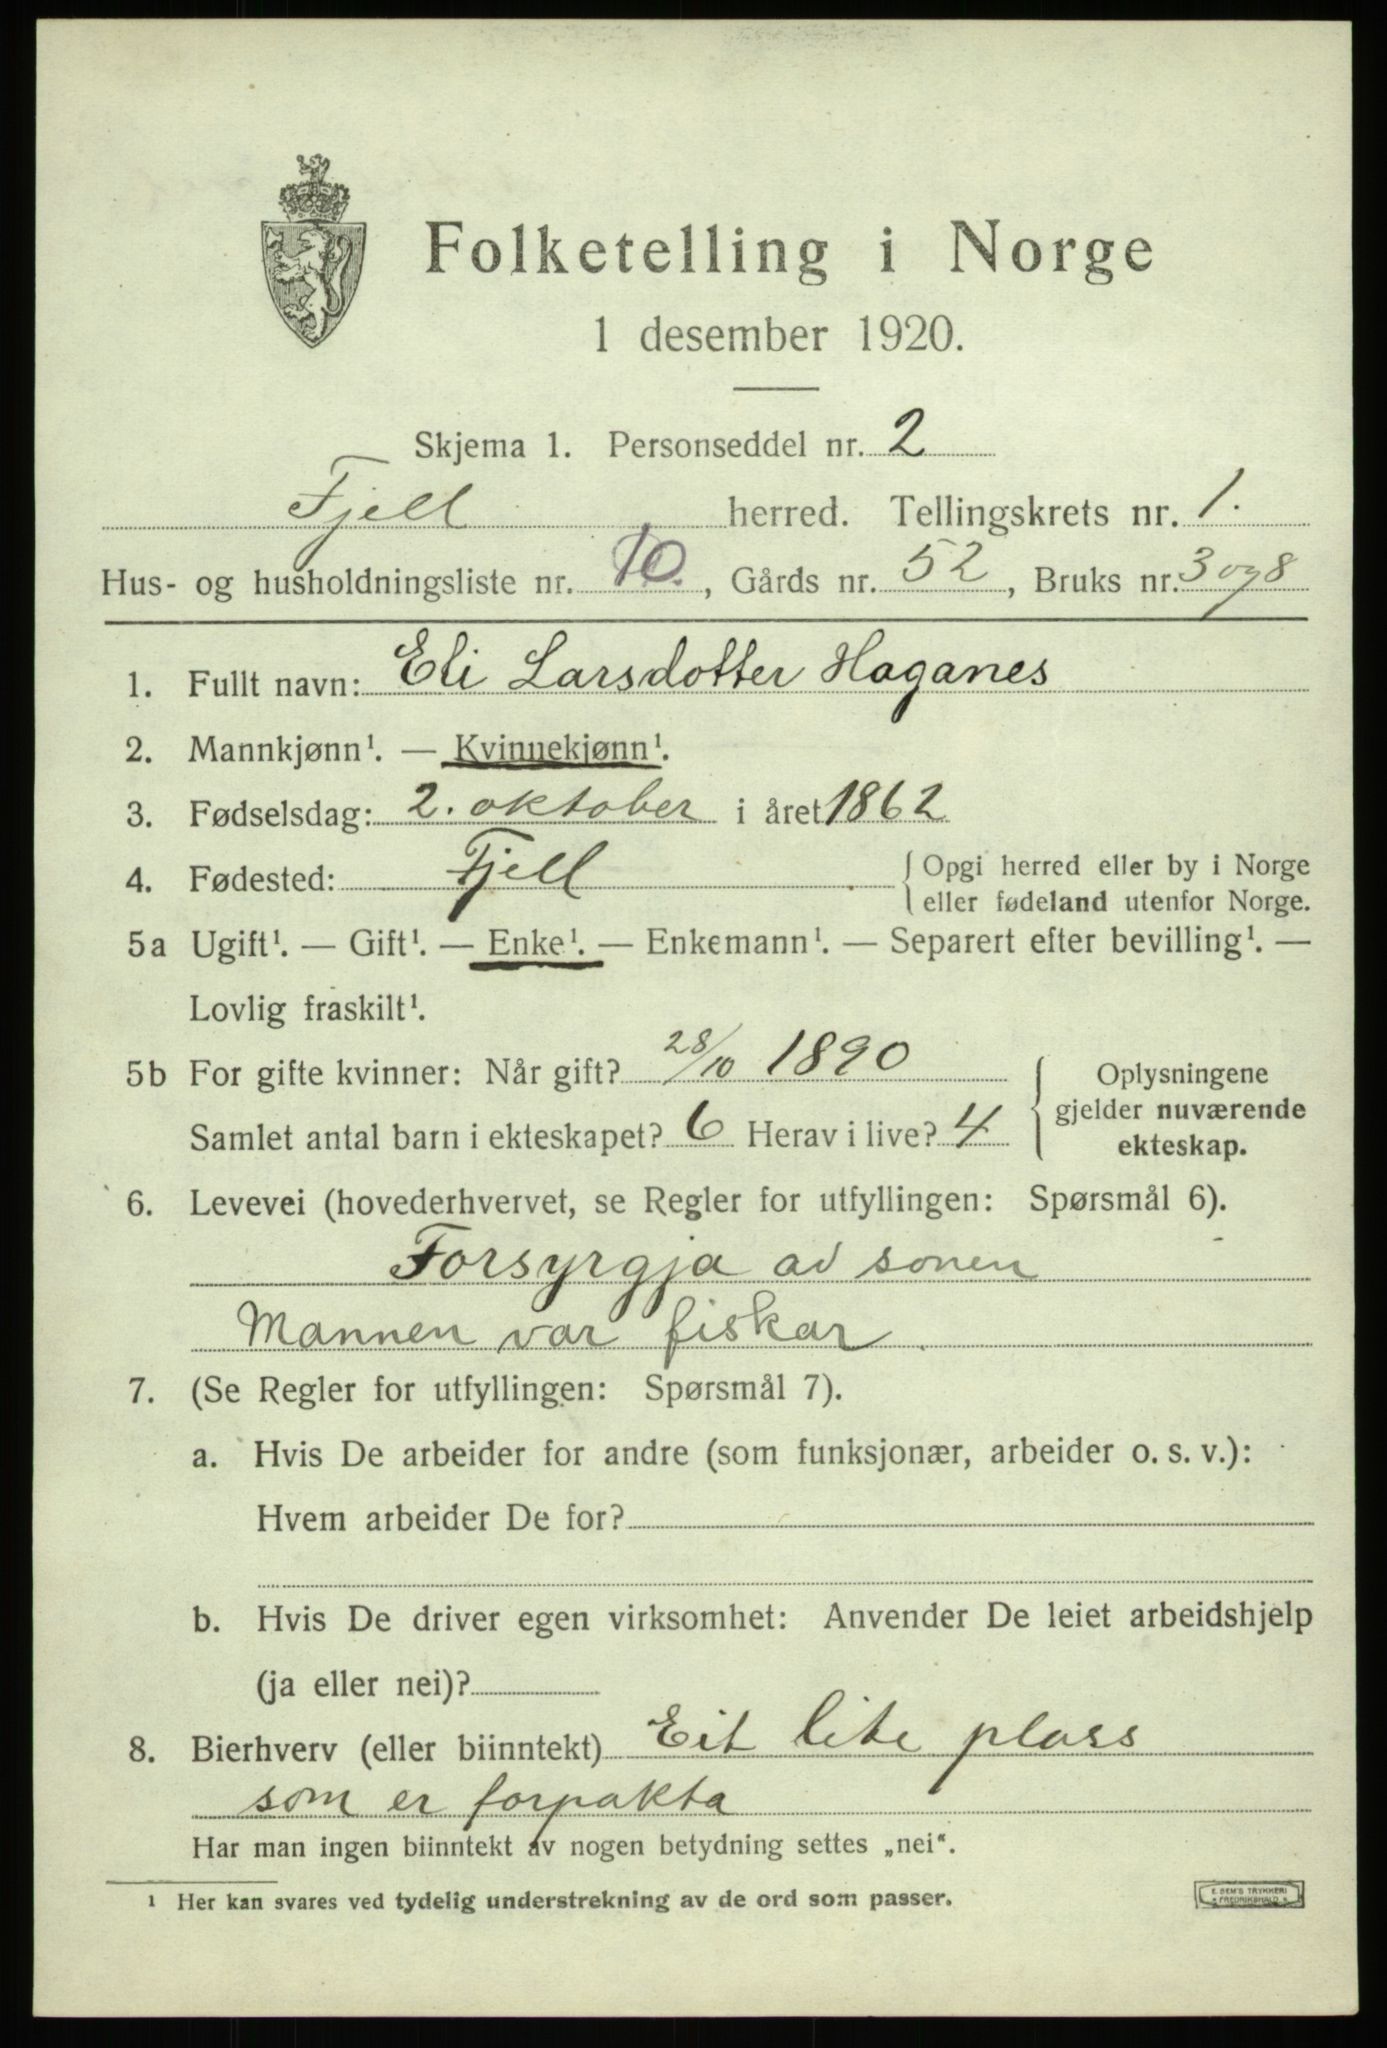 Folketelling i Norge
1 desember 1920.
Skjema 1. Personseddel nr. 2
Fjell herred. Tellingskrets nr. 1.
Hus- og husholdningsliste nr. 10., Gårds nr. 52, Bruks nr. 3 og 8
1. Fullt navn: Eli Larsdotter Haganes
2. Mannkjønn¹. — Kvinnekjønn¹.
3. Fødselsdag: 2. oktober i året 1862
4. Fødested: Fjell {Opgi herred eller by i Norge
eller fødeland utenfor Norge.
5a Ugift¹. — Gift¹. — Enke¹. — Enkemann¹. — Separert efter bevilling¹. —
Lovlig fraskilt¹.
5b For gifte kvinner: Når gift? 28/10 1890
Samlet antal barn i ekteskapet? 6 Herav i live? 4
Oplysningene
gjelder nuværende
ekteskap.
6. Levevei (hovederhvervet, se Regler for utfyllingen: Spørsmål 6).
Forsyrgja av sonen
Mannen var fiskar.
7. (Se Regler for utfyllingen: Spørsmål 7).
a. Hvis De arbeider for andre (som funksjonær, arbeider o. s. v.):
Hvem arbeider De for?
b. Hvis De driver egen virksomhet: Anvender De leiet arbeidshjelp
(ja eller nei)?
8. Bierhverv (eller biinntekt) Eit lite plass
som er forpakta
Har man ingen biinntekt av nogen betydning settes „nei“.
¹ Her kan svares ved tydelig understrekning av de ord som passer.
E. SEM'S TRYKKERI
FREDRIKSHALD